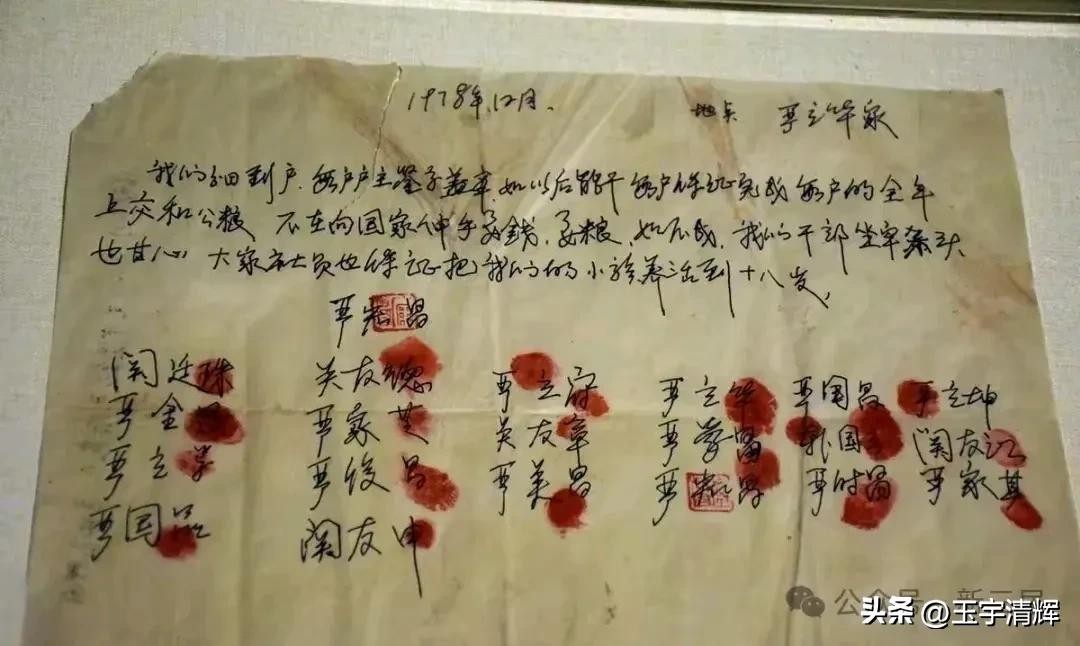 1978年12月. 地点 严立华家
我们分田到户.每户户主签字盖章.如以后能干每户保证完成每户的全年
上交和公粮 不在向国家伸手要钱,要粮,如不成,我们干部坐牢杀头
也甘心.大家社员也保证把我们的小孩养活到十八岁,
严宏昌
关廷珠 关友德 严立符 严立华 严国昌 严立坤
严金昌 严家芝 关友章 严学昌 韩国云 关友江
严立学 严俊昌 严美昌 严宏昌 严付昌 严家其
严国品 关友申
公众号·新三届
头条 @玉宇清辉